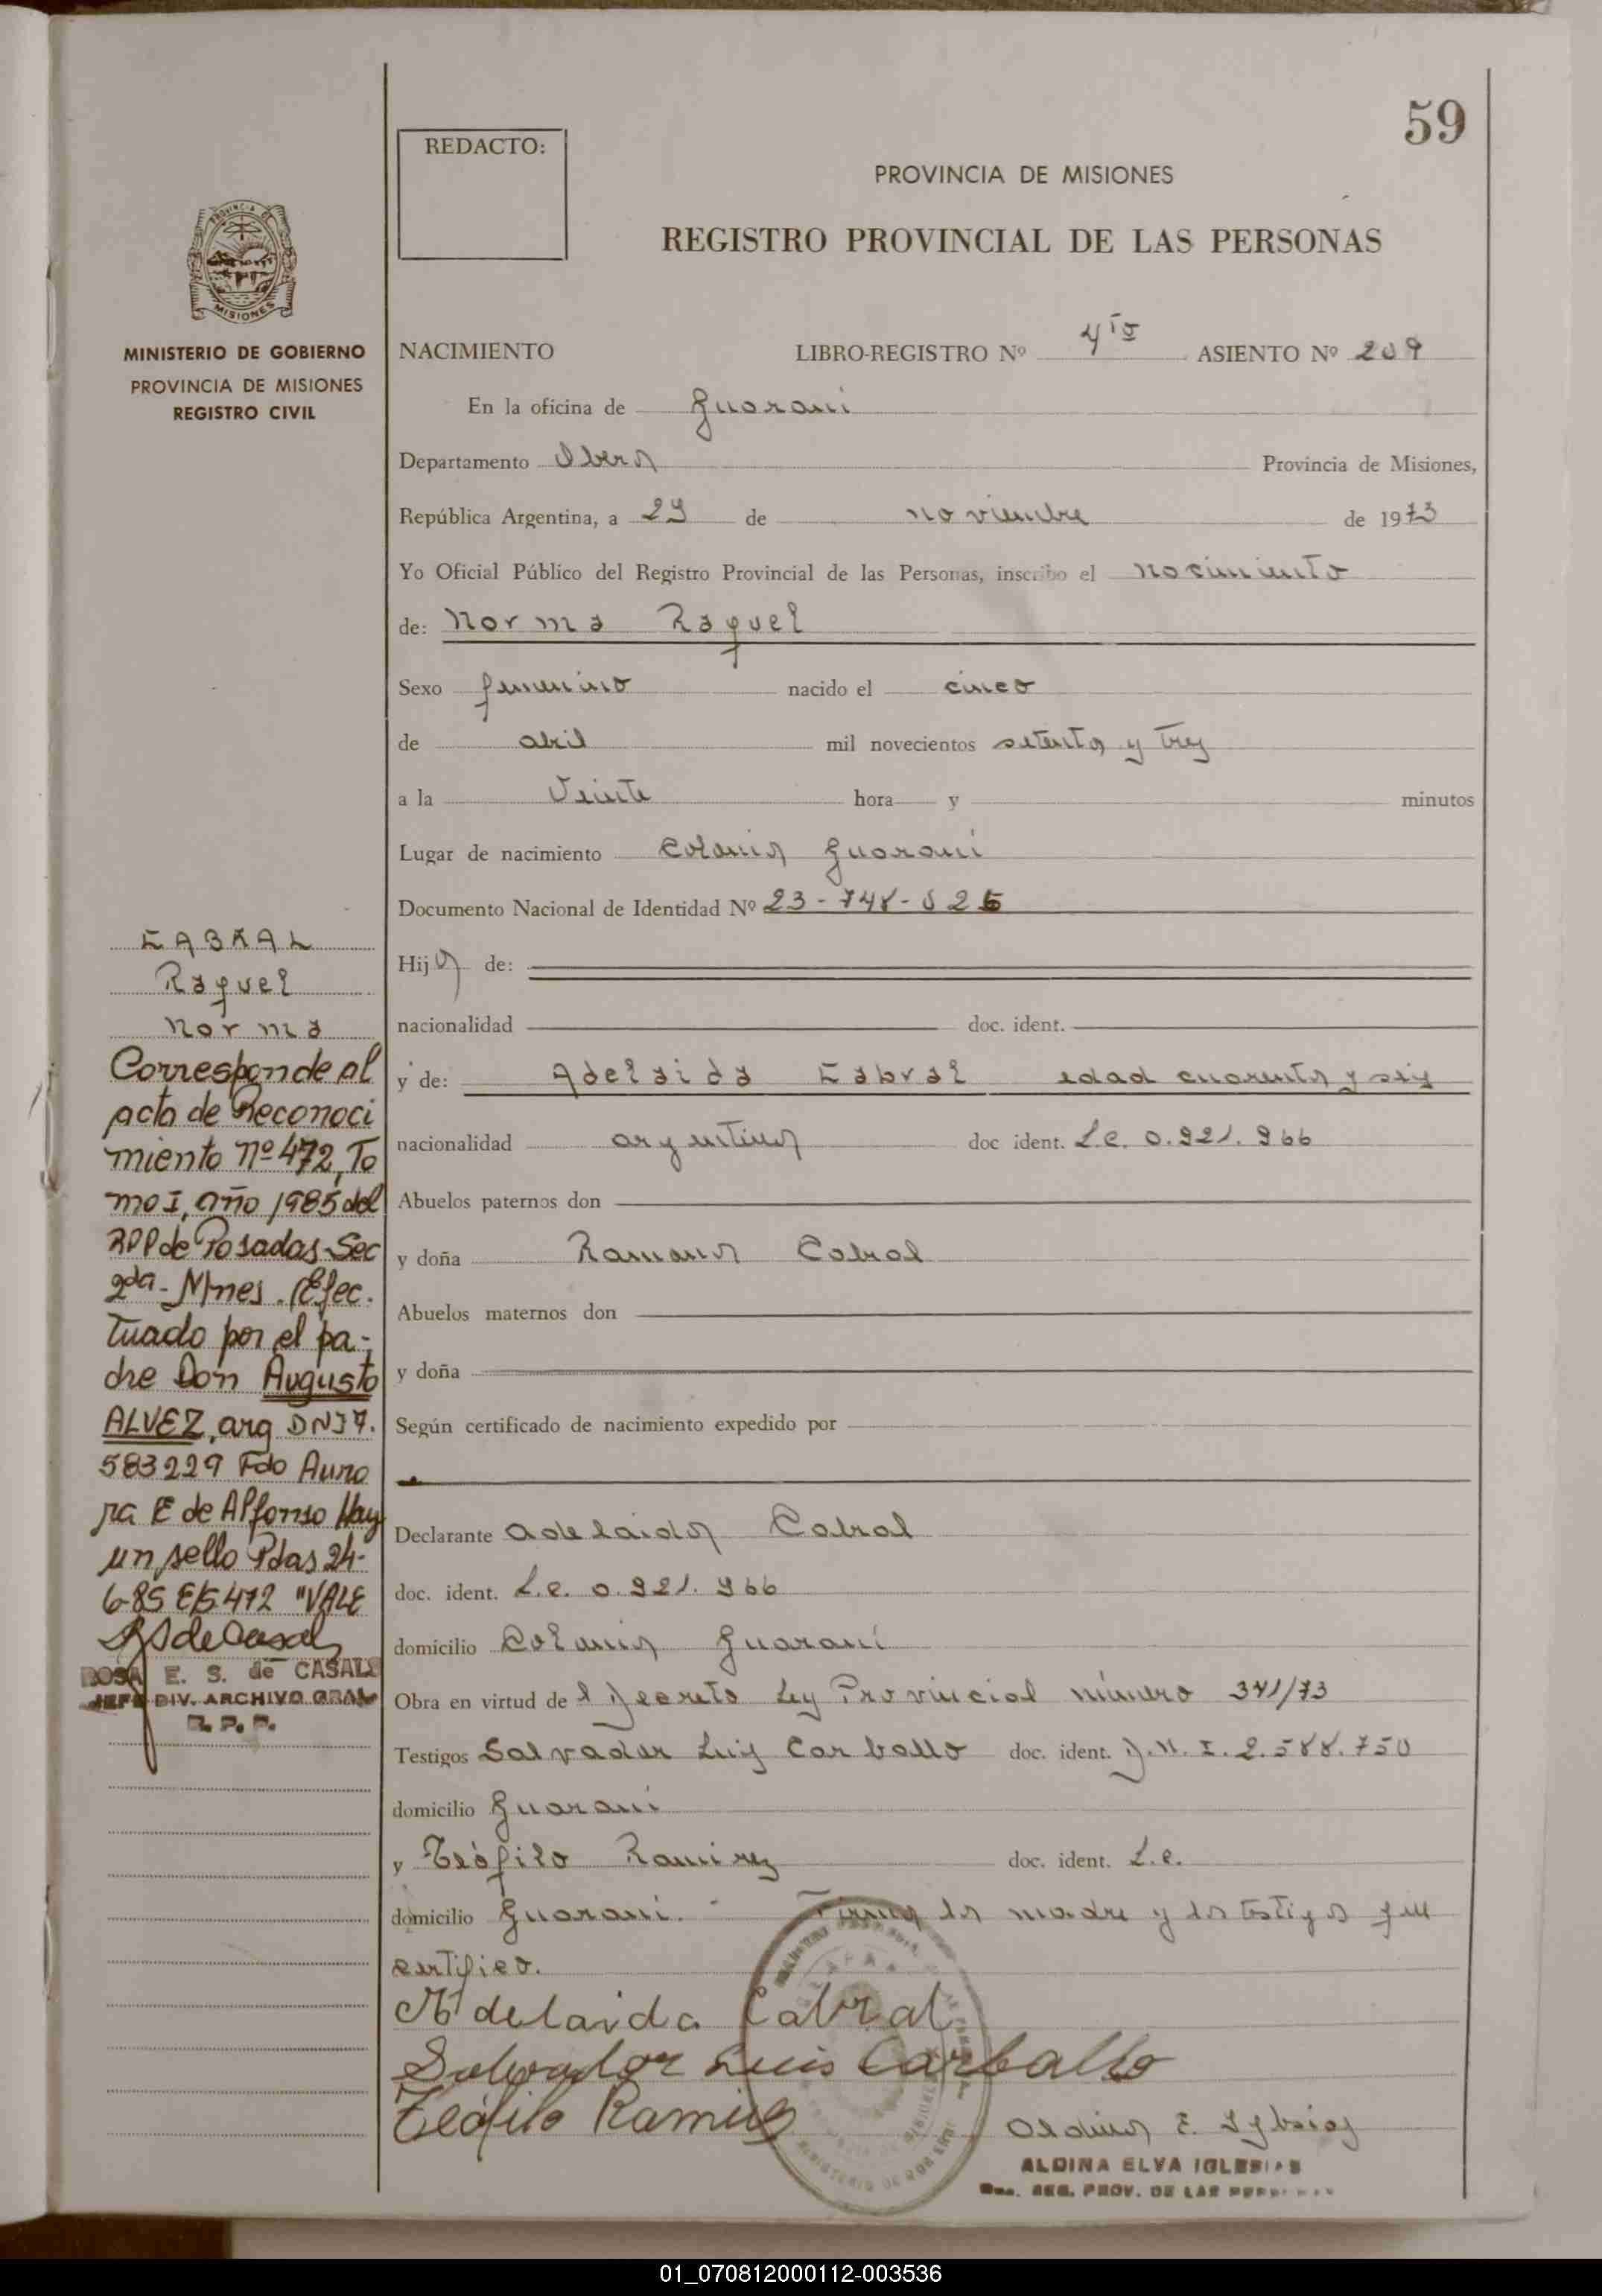 59
REDACTO:
PROVINCIA DE MISIONES
REGISTRO PROVINCIAL DE LAS PERSONAS
MISIONES
MINISTERIO DE GOBIERNO
PROVINCIA DE MISIONES
REGISTRO CIVIL
NACIMIENTO LIBRO-REGISTRO Nº 4to ASIENTO Nº 209
En la oficina de Guaraní
Departamento Oberá Provincia de Misiones,
República Argentina, a 29 de noviembre de 1973
Yo Oficial Público del Registro Provincial de las Personas, inscribo el nacimiento
de: Norma Raquel
Sexo femenino nacido el cinco
de abril mil novecientos setenta y tres
a la veinte hora y minutos
Lugar de nacimiento Colonia Guaraní
Documento Nacional de Identidad Nº 23-748-526
Hija de:
nacionalidad doc. ident.
y de: Adelaida Cabral edad cuarenta y seis
nacionalidad argentina doc ident. L.C. 0.921.966
Abuelos paternos don
y doña Ramona Cabral
Abuelos maternos don
y doña
Según certificado de nacimiento expedido por
Declarante Adelaida Cabral
doc. ident. L.C. 0.921.966
domicilio Colonia Guaraní
Obra en virtud de l Decreto Ley Provincial número 341/73
Testigos Salvador Luis Carballo doc. ident. D.N.I. 2.588.750
domicilio Guaraní
y Teófilo Ramirez doc. ident. L.e.
domicilio Guaraní. - Firma la madre y los testigos que
certifico.
Adelaida Cabral
Salvador Luis Carballo
Teófilo Ramirez
Aldina E. Iglesias
ALDINA ELVA IGLESIAS
REG. PROV. DE LAS
CABRAL
Raquel
Norma
Corresponde al
acta de Reconoci
miento nº 472, To
mo I, año 1985 del
RPP de Posadas-Sec
2da- Mnes. (Efec.
tuado por el pa-
dre Don Augusto
ALVEZ, arg DNI 7.
583229 Fdo Auro
ra E de Alfonso Hay
un sello Pdas 24-
6-85 E/S 472 "VALE
RS de Casal
ROSA E. S. de CASALS
JEFE DIV. ARCHIVO GRAL
R. P. P.
01_070812000112-003536